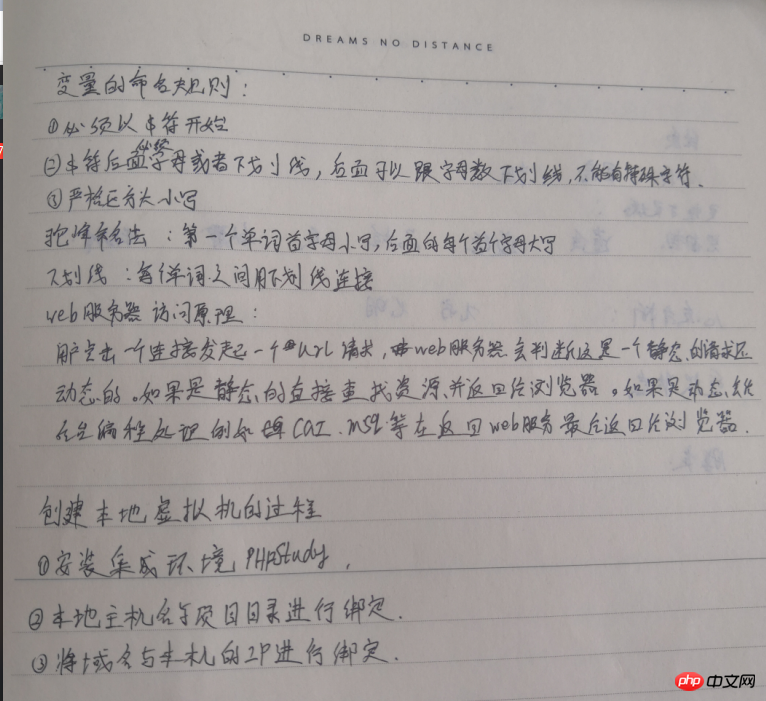 DREAMS NO DISTANCE
变量的命名规则:
①必须以$符开始
②$符后面必须字母或者下划线,后面可以跟字母数下划线,不能有特殊字符.
③严格区分大小写
驼峰命名法:第一个单词首字母小写,后面的每个首个字母大写
下划线:每个单词之间用下划线连接
web服务器访问原理:
用户点击一个连接发起一个url请求, web服务器会判断这是一个静态的请求还
动态的。如果是静态的直接查找资源并返回给浏览器。如果是动态,给
后台编程处理例如 CGI.MSQL等在返回web服务最后返回给浏览器.
创建本地虚拟机的过程
①安装集成环境PHPStudy,
②本地主机名与项目目录进行绑定.
③将域名与本机的IP进行绑定.
php中文网